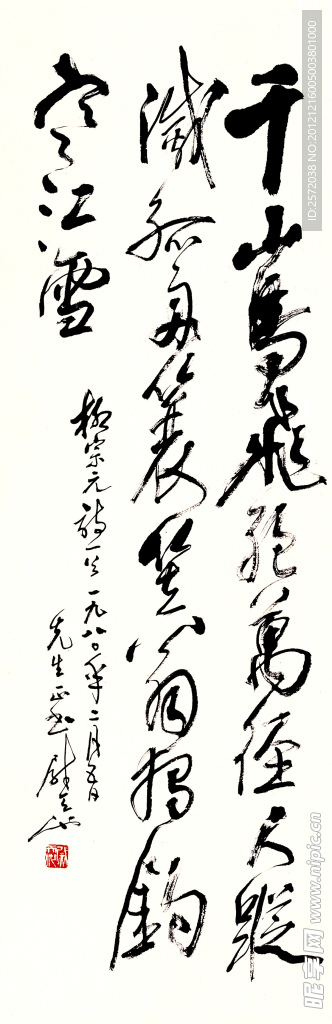 千山鸟飞绝萬径人踪
滅孤舟蓑笠翁独钓
寒江雪
柳宗元诗一首一九八〇年二月五日
先生正
ID:2572038 NO:20121216005003801000
昵享网 www.nipic.cn